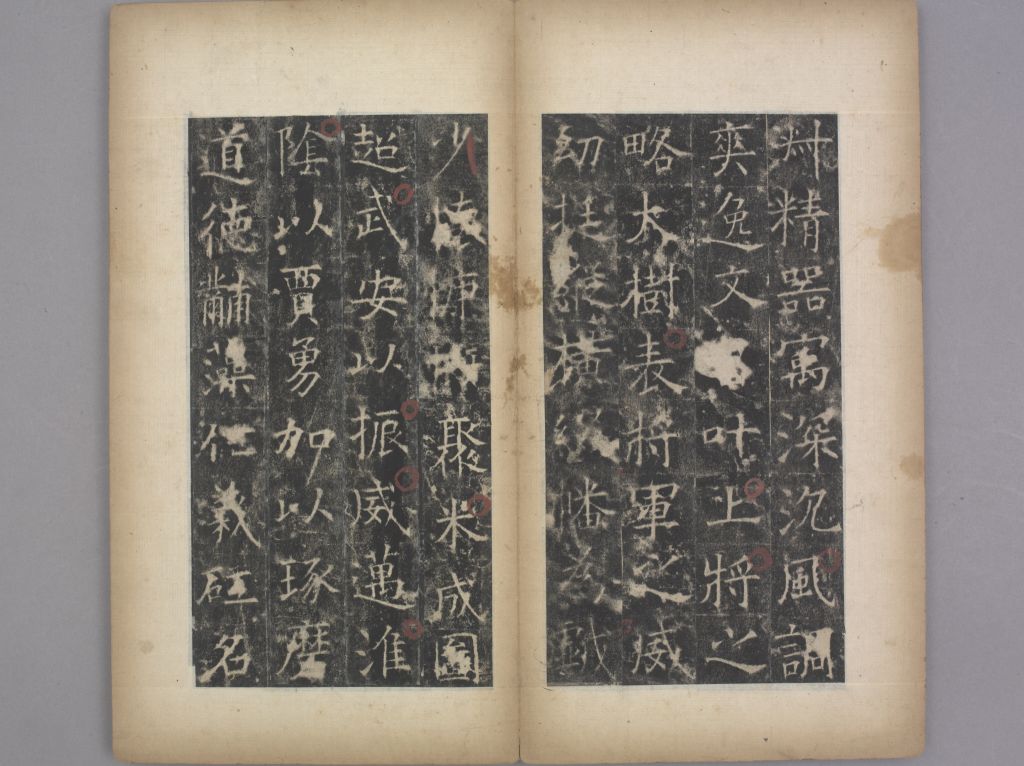 精器寓深沉風調
爽逸文叶上將之
略大樹表將軍之威
幼挺縱橫
少懷聚米成圖
超武安以振威邁淮
陰以賈勇加以琢磨
道德黼藻仁義名